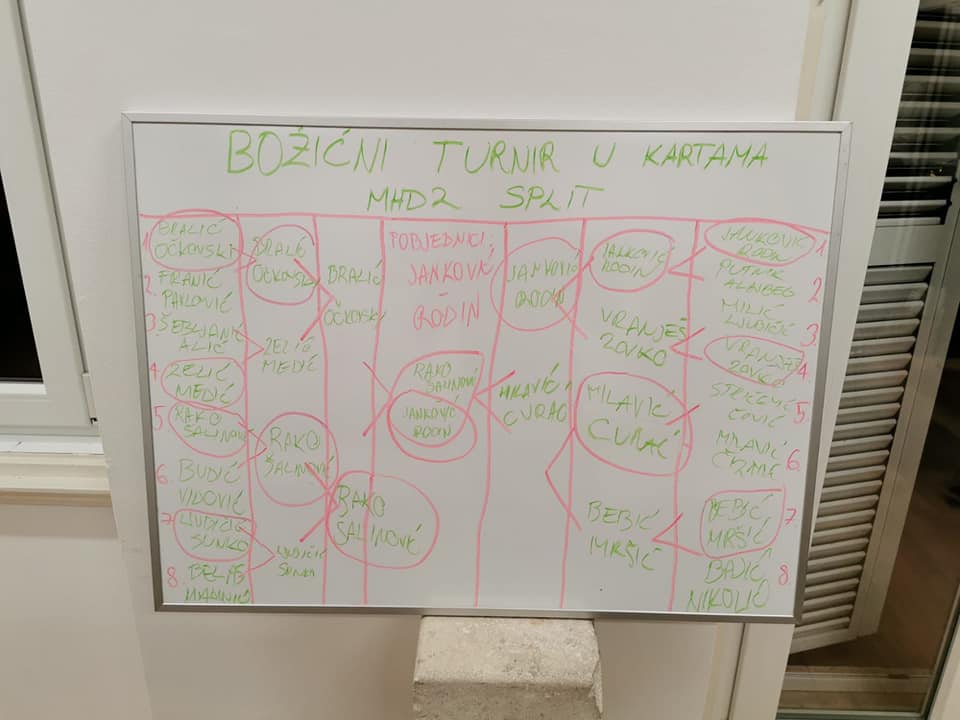 BOŽIĆNI TURNIR U KARTAMA
MHD2 SPLIT
1 BRALIĆ
OČKOVSKI
2. FRANIĆ
PAVLOVIĆ
3.
ALIĆ
4 ZELIĆ
MEDIĆ
5 RAKO
ŠALINOVIĆ
6. BUDIĆ
VIDOVIĆ
7. LJUDIČIĆ
SUNKO
8. BELAS
BRALIĆ
OČKOVSKI
ZELIĆ
MEDIĆ
RAKO
ŠALINOVIĆ
LJUDIČIĆ
SUNKO
BRALIĆ
OČKOVSKI
RAKO
SALINOVIĆ
POBJEDNICI:
JANKOVIĆ
-
RODIN
RAKO
SALINOVIĆ
JANKOVIĆ
RODIN
JANKOVIĆ
RODIN
MILAVIĆ
CURAĆ
JANKOVIĆ
RODIN
VRANJEŠ
ZOVKO
MILAVIĆ
CURAĆ
BEBIĆ
MRŠIĆ
JANKOVIĆ 1
RODIN
PUTNIK 2
ALAIBEG
MILIĆ 3.
LJUBIČIĆ
VRANJEŠ 4.
ZOVKO
5.
ČOVIĆ
MILAVIĆ 6.
BEBIĆ 7.
MRŠIĆ
BAJIĆ 8.
NIKOLIĆ